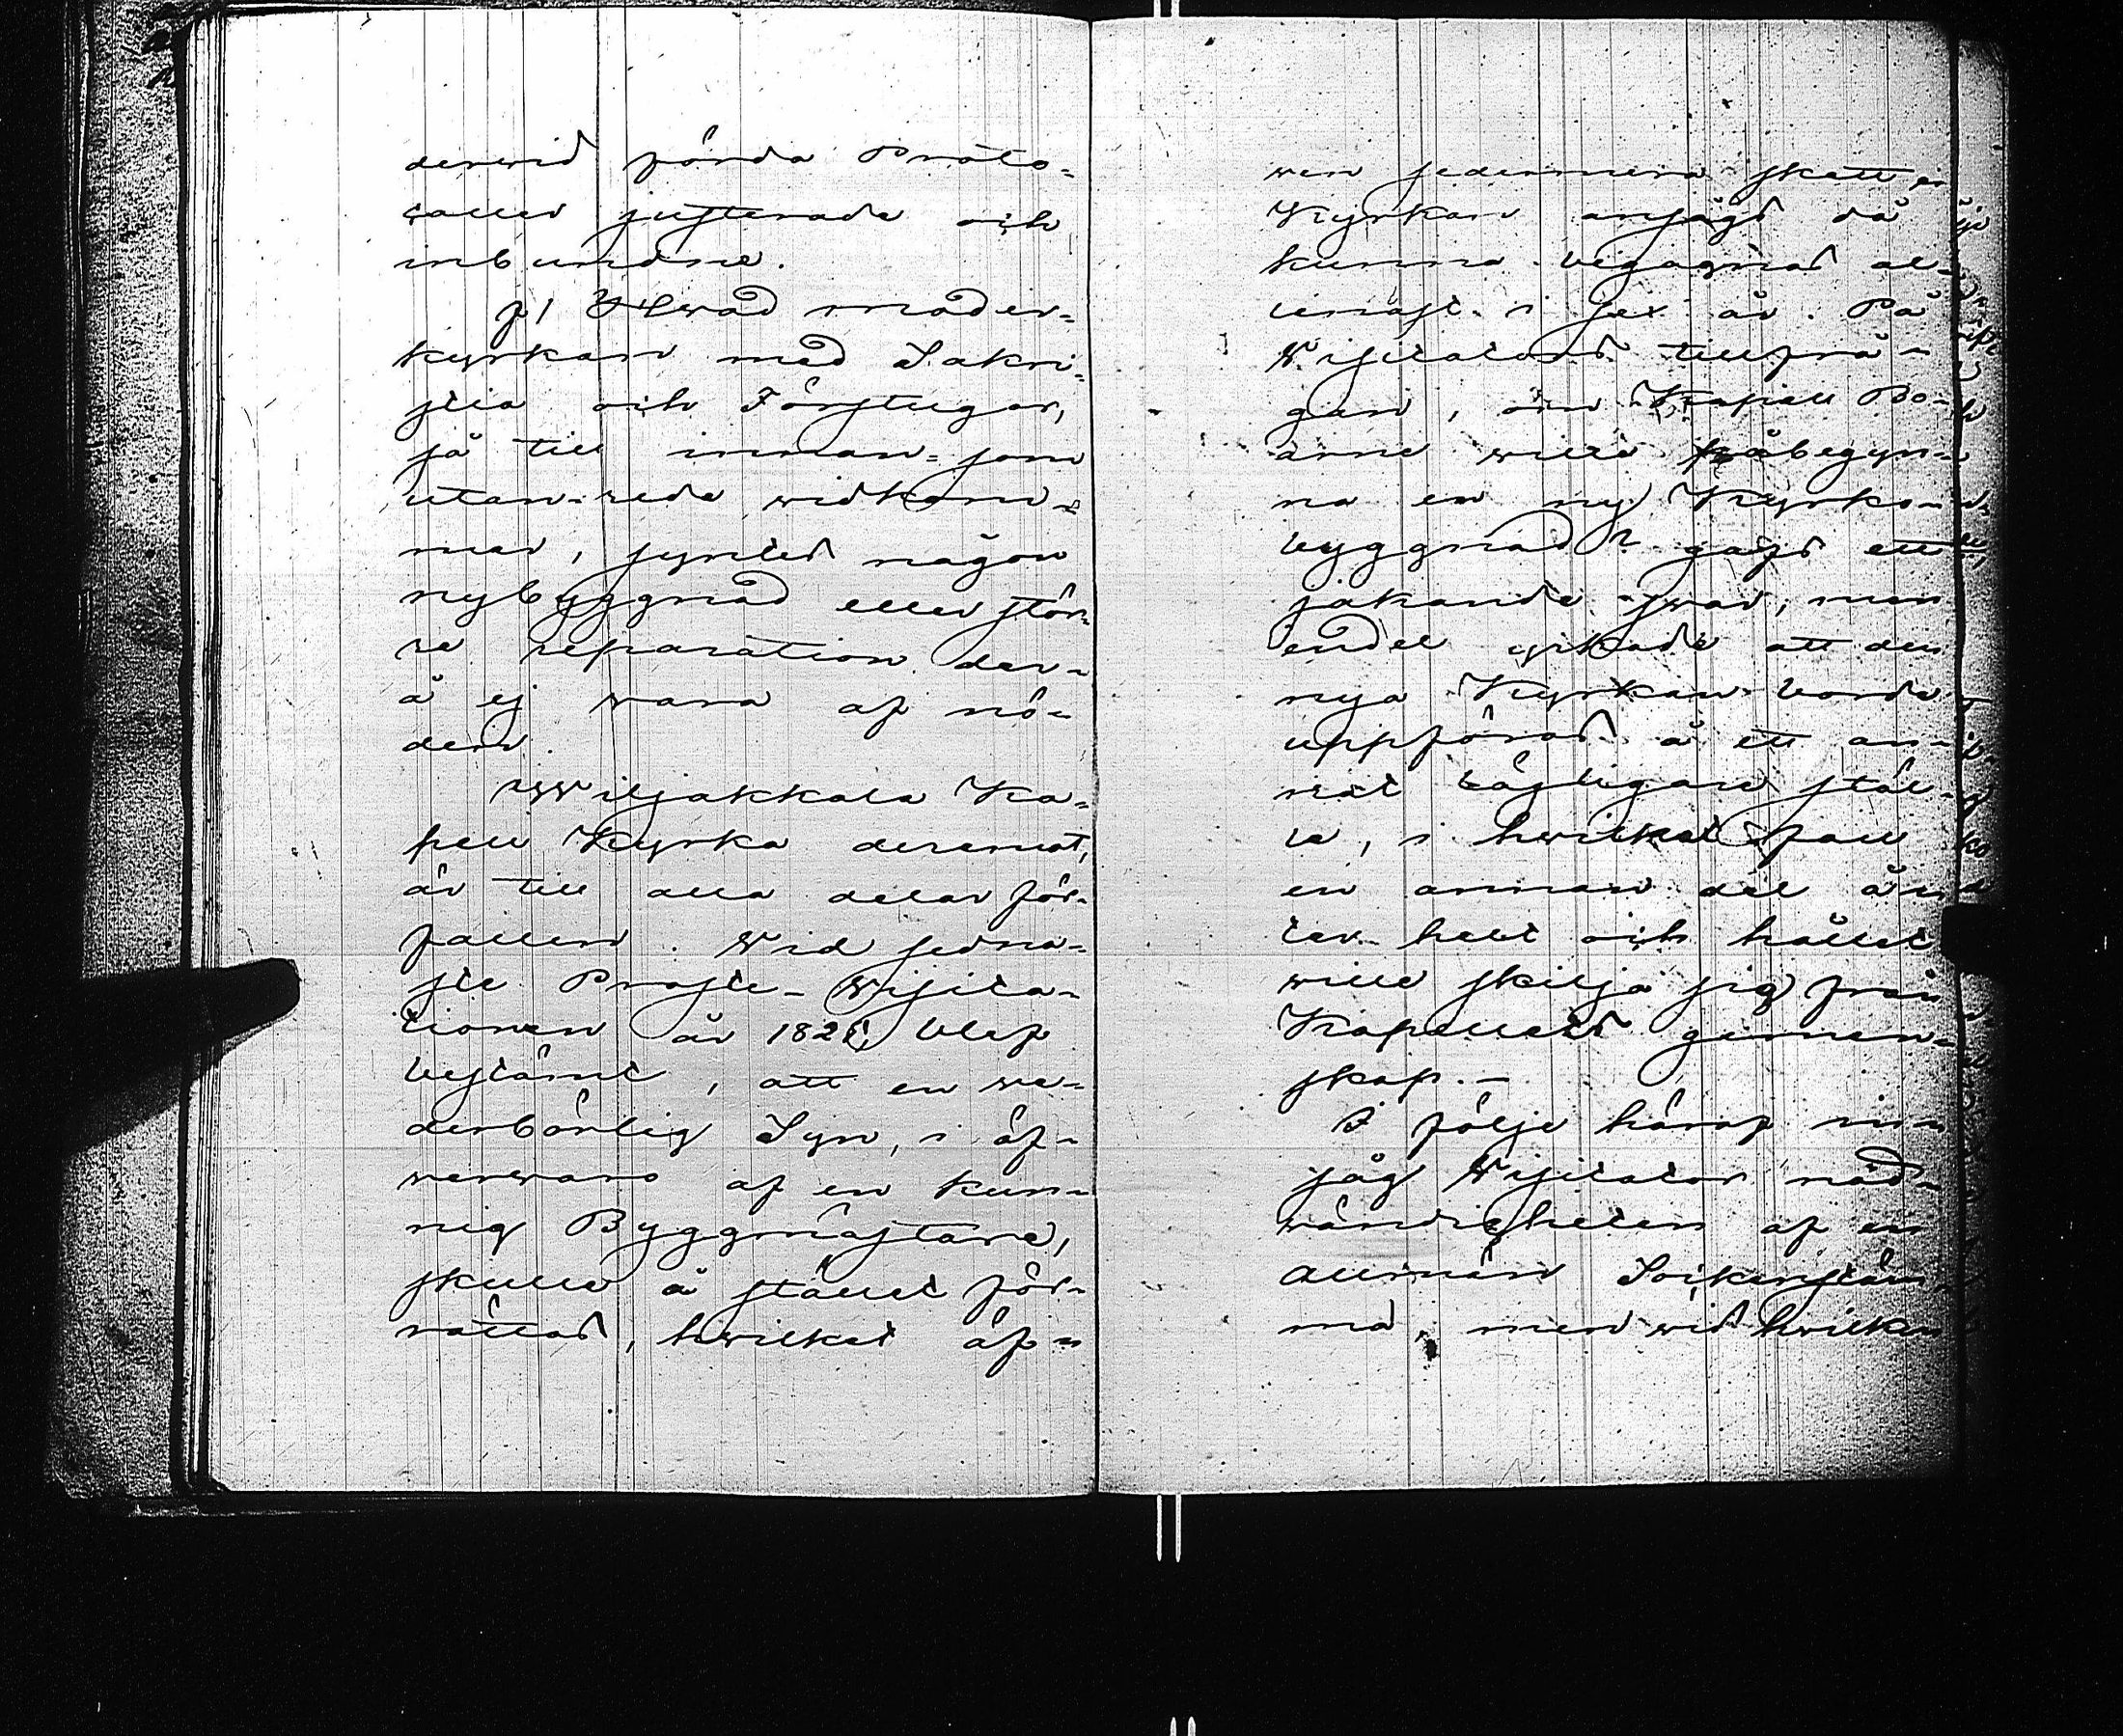 derwid förda Proto-
coller justerade och
inbundne.
f/ Hwad moder-
kyrkan med Sakri-
stia och Förstugor,
så till innan- som
utan-rede widkom-
mer, syntes någon
nybyggnad eller stör-
re reparation der-
å ej vara af nö-
den.
Wiljakkala Ka-
pell Kyrka deremot,
är till alla delar för-
fallen. Wid sedna-
ste Proste-Visita-
tionen år 182 blef
bestämt, att en we-
derbörlig Syn, i öf-
verwaro af en kun-
nig Byggmästare,
skulle å stället för-
rättas, hwilket äf-
ven sedermera skett o
Kyrkan ansågs då
kunna begagnas al-
lenast i sex år. På
Visitators tillfrå-
gan, om Kapell Bo-
arne wille påbegyn-
na en ny Kyrko-
byggnad? gafs ett
jakande svar, men
endel yrkade att den
nya Kyrkan borde
uppföras å ett an-
nat tjenligare stäl-
le, i hwilket fall
en annan del åter
helt och hållet
wille skilja sig från
Kapellets gemen-
skap.-
I följe häraf in-
såg Visitator nöd-
wändigheten af en
allmän Sockenstäm-
ma, men wid hwilken